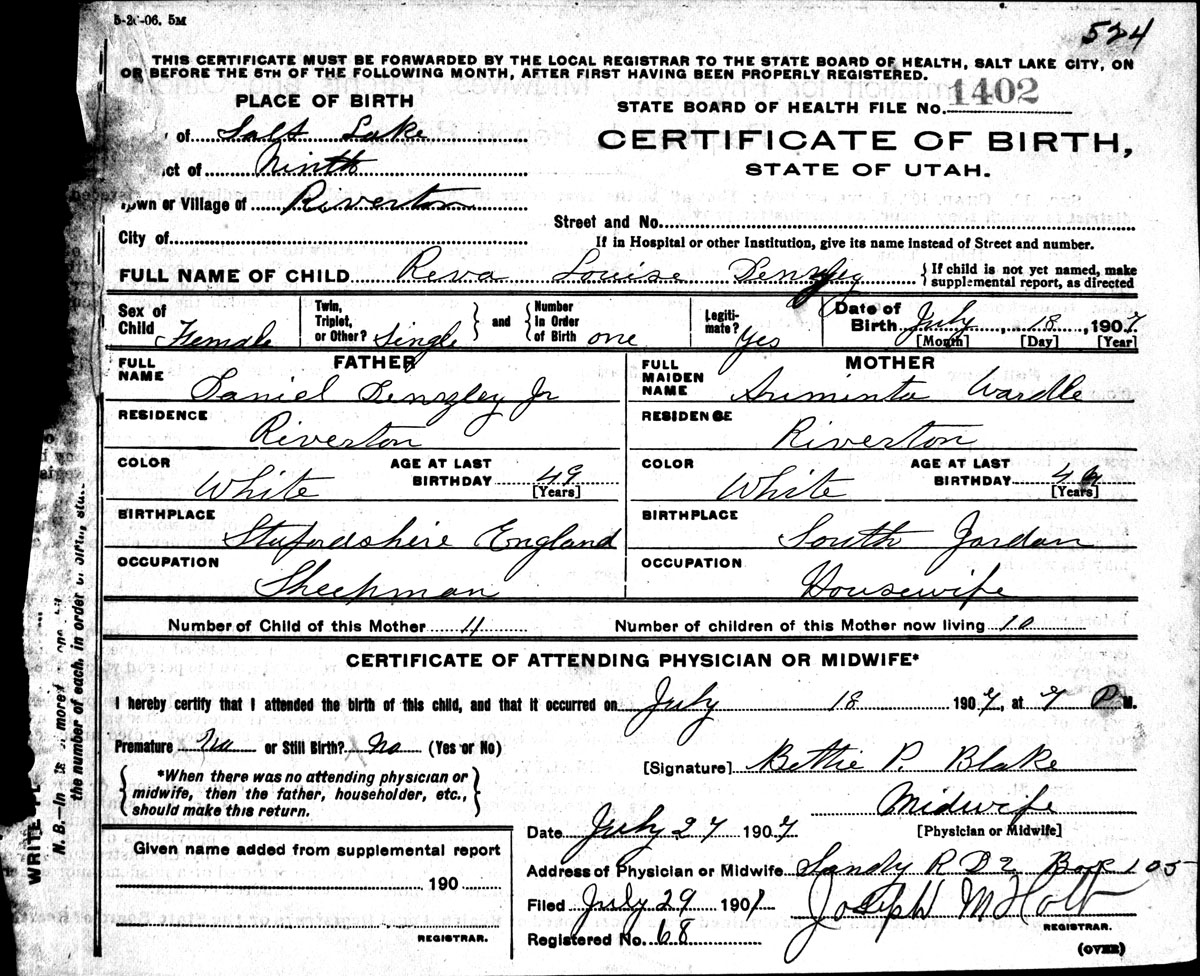 5-2(-06. 5M
524
THIS CERTIFICATE MUST BE FORWARDED BY THE LOCAL REGISTRAR TO THE STATE BOARD OF HEALTH, SALT LAKE CITY, ON
OR BEFORE THE 5TH OF THE FOLLOWING MONTH, AFTER FIRST HAVING BEEN PROPERLY REGISTERED.
PLACE OF BIRTH
STATE BOARD OF HEALTH FILE No. 1402
of Salt Lake
CERTIFICATE OF BIRTH,
ct of Ninth
STATE OF UTAH.
Town or Village of Riverton
Street and No.
City of
If in Hospital or other Institution, give its name instead of Street and number.
FULL NAME OF CHILD Reva Louise Denzley { If child is not yet named, make supplemental report, as directed
Sex of Child Female
Twin, Triplet, or Other? Single } and { Number in Order of Birth one
Legitimate? Yes
Date of Birth July, 18, 1907
[Month] [Day] [Year]
FATHER
FULL NAME Daniel Denzley Jr
MOTHER
FULL MAIDEN NAME Ariminta Wardle
RESIDENCE Riverton
RESIDENCE Riverton
COLOR White AGE AT LAST BIRTHDAY 49 [Years]
COLOR White AGE AT LAST BIRTHDAY 4 [Years]
BIRTHPLACE Stafordshire England
BIRTHPLACE South Jordan
OCCUPATION Sheepman
OCCUPATION Housewife
Number of Child of this Mother 11 Number of children of this Mother now living 10
CERTIFICATE OF ATTENDING PHYSICIAN OR MIDWIFE*
I hereby certify that I attended the birth of this child, and that it occurred on July 18 1907, at 7 P M.
Premature No or Still Birth? No (Yes or No)
[Signature] Bettie P. Blake
{ *When there was no attending physician or midwife, then the father, householder, etc., should make this return. }
Midwife
[Physician or Midwife]
Date July 27 1907
Given name added from supplemental report
190
REGISTRAR.
Address of Physician or Midwife Sandy R D 2 Box 105
Filed July 29 190
Joseph M Holt
REGISTRAR.
Registered No. 68
(OVER)
WRITE PL
N. B.—In more
the number of each, in order of birth, sta